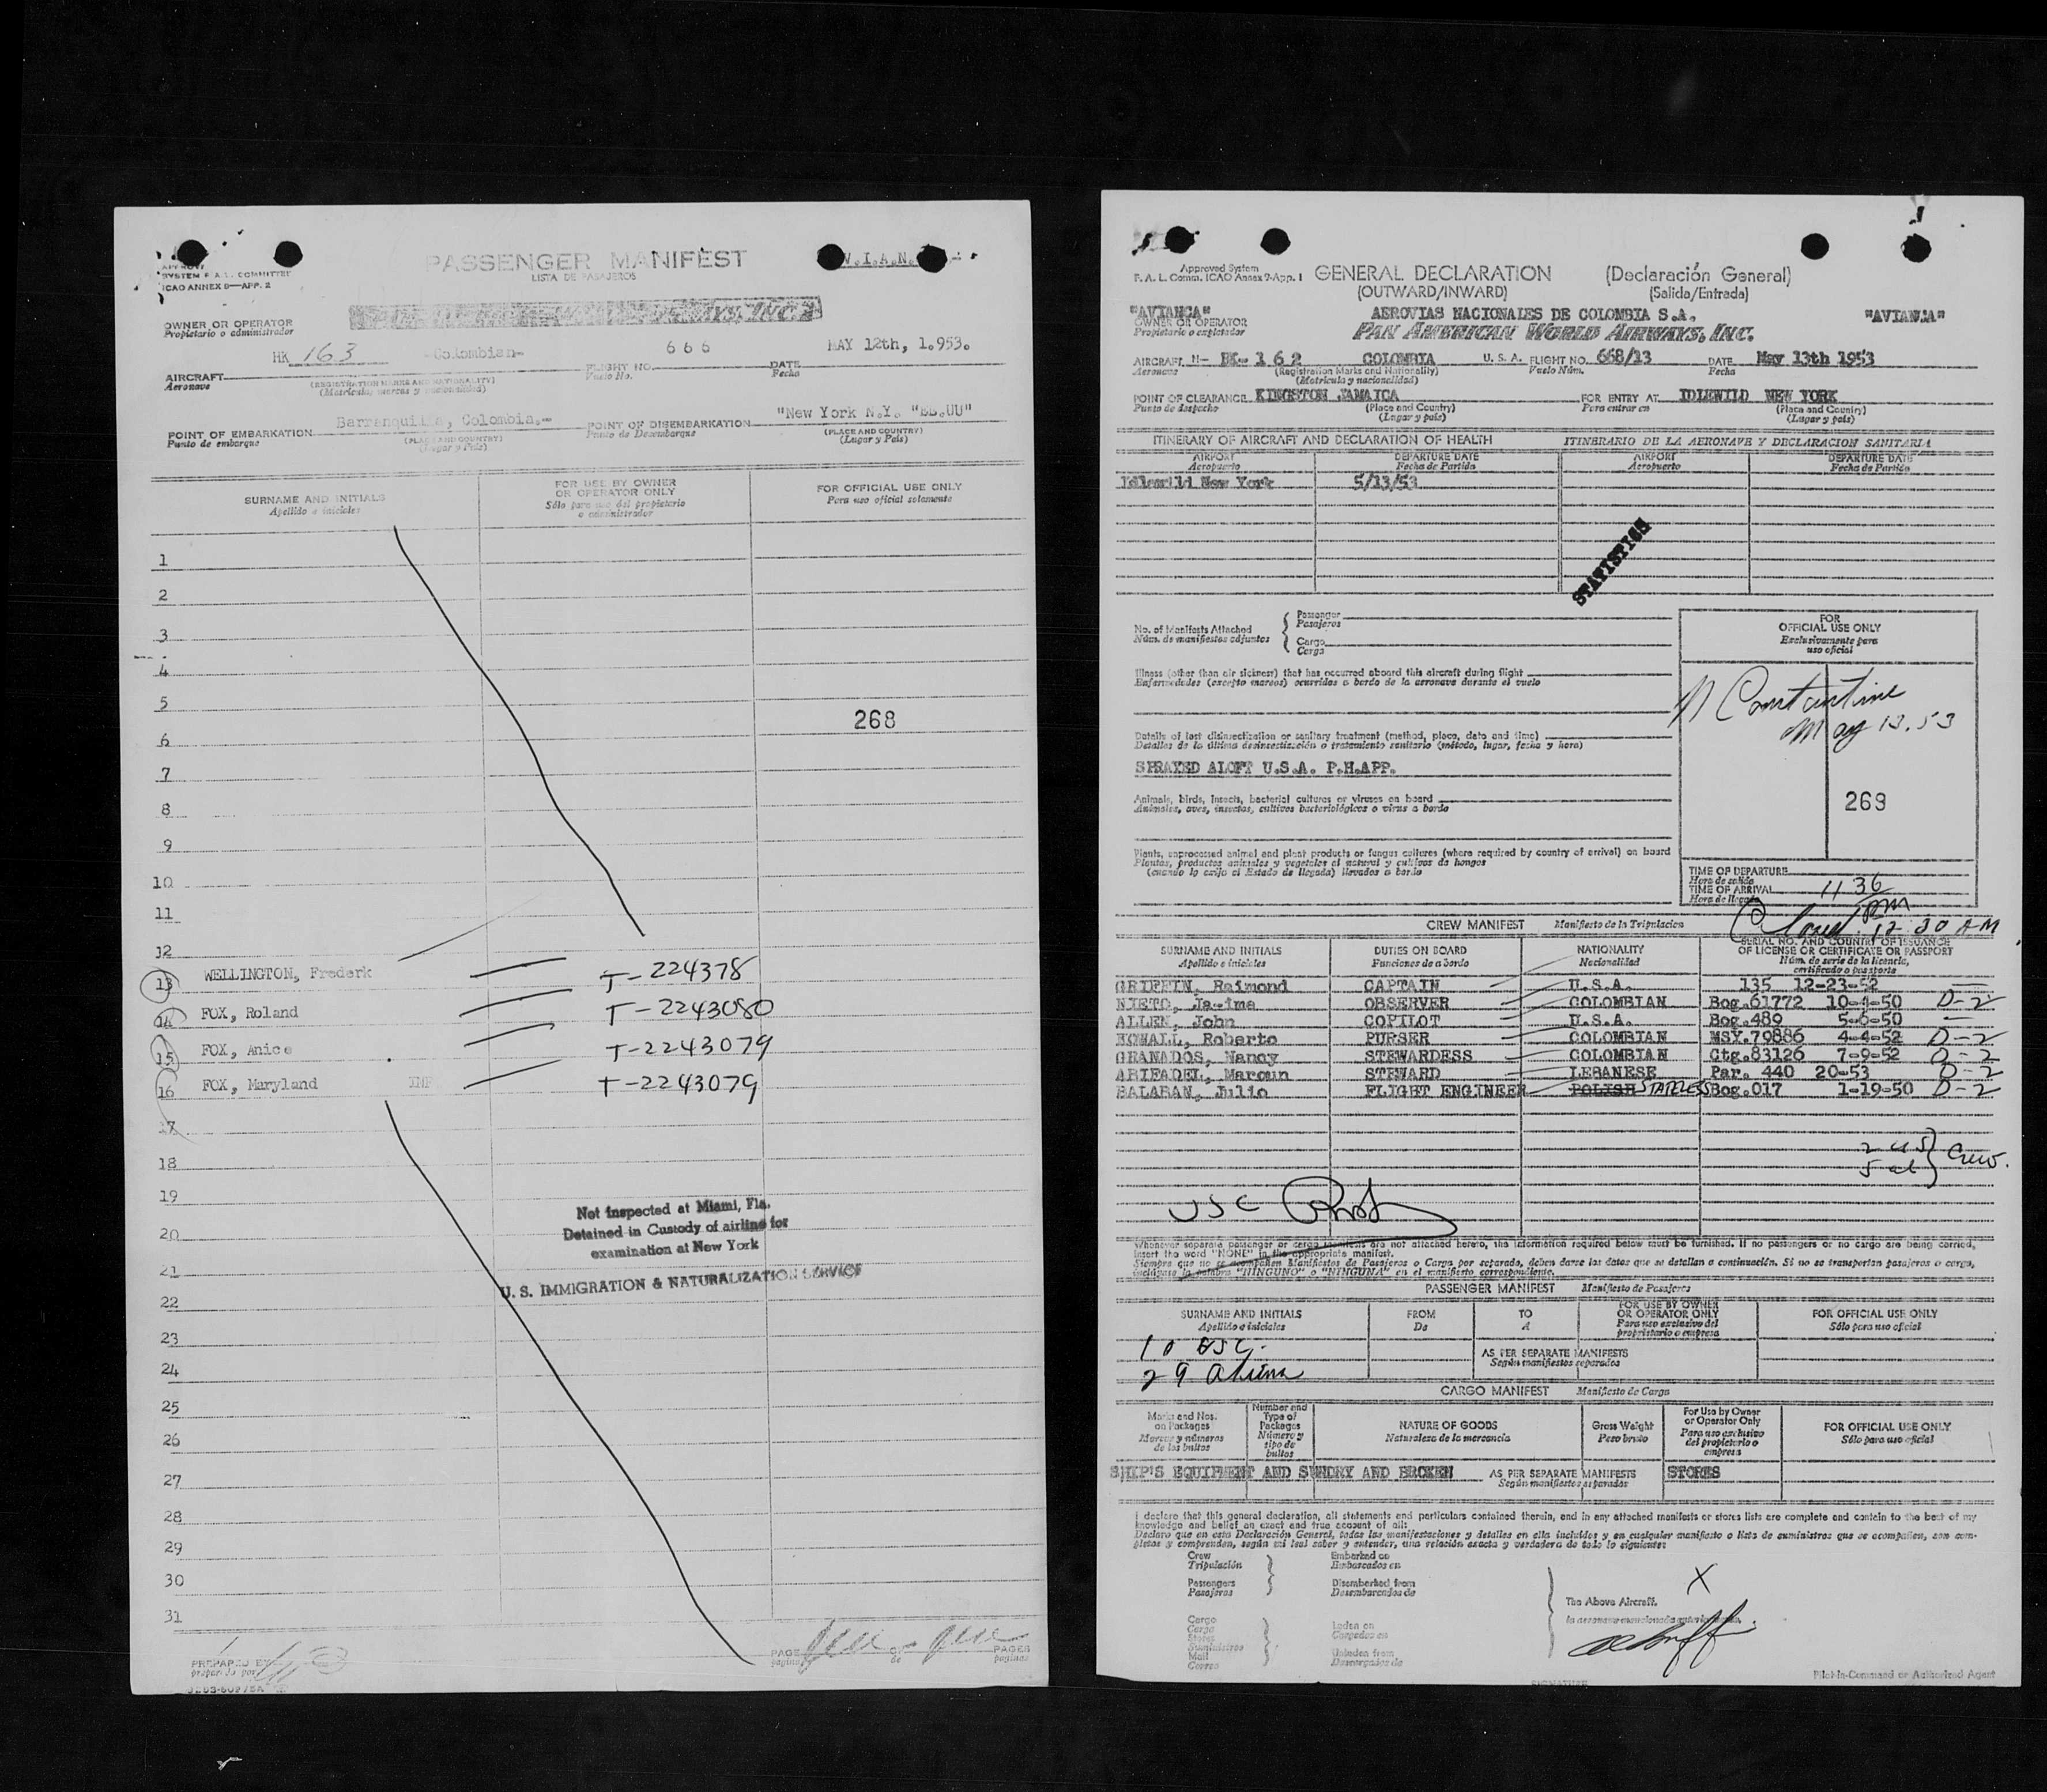 SYSTEM F.A.L. COMMITTEE
ICAO ANNEX 9—APP. 2
PASSENGER MANIFEST
LISTA DE PASAJEROS
V.I.A.N.
OWNER OR OPERATOR
Propietario o administrador
HK 163 -Colombian- 666 MAY 12th, 1.953.
AIRCRAFT FLIGHT NO. DATE
Aeronave (REGISTRATION MARKS AND NATIONALITY) Vuelo No. Fecha
(Matrícula, marcas y nacionalidad)
Barranquilla, Colombia.- "New York N.Y. "EE.UU"
POINT OF EMBARKATION (PLACE AND COUNTRY) POINT OF DISEMBARKATION (PLACE AND COUNTRY)
Punto de embarque (Lugar y País) Punto de Desembarque (Lugar y País)
SURNAME AND INITIALS FOR USE BY OWNER OR OPERATOR ONLY FOR OFFICIAL USE ONLY
Apellido e iniciales Sólo para uso del propietario o administrador Para uso oficial solamente
1
2
3
4
5
268
6
7
8
9
10
11
12
13 WELLINGTON, Frederk T-224378
14 FOX, Roland T-2243080
15 FOX, Anice T-2243079
16 FOX, Maryland INF T-2243079
17
18
19
Not inspected at Miami, Fla.
20 Detained in Custody of airline for
examination at New York
21
U. S. IMMIGRATION & NATURALIZATION SERVICE
22
23
24
25
26
27
28
29
30
31
PREPARED BY PAGE OF PAGES
preparado por página de páginas
Approved System
F.A.L. Comm. ICAO Annex 9-App. 1
GENERAL DECLARATION (Declaración General)
(OUTWARD/INWARD) (Salida/Entrada)
"AVIANCA" AEROVIAS NACIONALES DE COLOMBIA S.A. "AVIANCA"
OWNER OR OPERATOR PAN AMERICAN WORLD AIRWAYS, INC.
Propietario o explotador
AIRCRAFT N- HK- 1 6 2 COLOMBIA U.S.A. FLIGHT NO. 668/13 DATE May 13th 1953
Aeronaves (Registration Marks and Nationality) Vuelo Núm. Fecha
(Matrícula y nacionalidad)
POINT OF CLEARANCE KINGSTON JAMAICA FOR ENTRY AT IDLEWILD NEW YORK
Punto de despacho (Place and Country) Para entrar en (Place and Country)
(Lugar y país) (Lugar y país)
ITINERARY OF AIRCRAFT AND DECLARATION OF HEALTH ITINERARIO DE LA AERONAVE Y DECLARACION SANITARIA
AIRPORT DEPARTURE DATE AIRPORT DEPARTURE DATE
Aeropuerto Fecha de Partida Aeropuerto Fecha de Partida
Idlewild New York 5/13/53
STATISTICS
No. of Manifests Attached Passenger
Núm. de manifiestos adjuntos Pasajeros
Cargo
Carga
FOR
OFFICIAL USE ONLY
Exclusivamente para
uso oficial
Illness (other than air sickness) that has occurred aboard this aircraft during flight
Enfermedades (excepto mareos) ocurridos a bordo de la aeronave durante el vuelo
N Constantine
May 13.53
Details of last disinsectization or sanitary treatment (method, place, date and time)
Detalles de la última desinsectización o tratamiento sanitario (método, lugar, fecha y hora)
SPRAYED ALOFT U.S.A. P.H.APP.
Animals, birds, insects, bacterial cultures or viruses on board
Animales, aves, insectos, cultivos bacteriológicos o virus a bordo
269
Plants, unprocessed animal and plant products or fungus cultures (where required by country of arrival) on board
Plantas, productos animales y vegetales al natural y cultivos de hongos
(cuando lo exija el Estado de llegada) llevados a bordo
TIME OF DEPARTURE
Hora de salida
TIME OF ARRIVAL 11 36 PM
Hora de llegada
12:30 AM
CREW MANIFEST Manifiesto de la Tripulacion
SURNAME AND INITIALS DUTIES ON BOARD NATIONALITY SERIAL NO. AND COUNTRY OF ISSUANCE OF LICENSE OR CERTIFICATE OR PASSPORT
Apellido e iniciales Funciones de a bordo Nacionalidad Núm. de serie de la licencia, certificado o pasaporte
GRIFFIN, Raimond CAPTAIN U.S.A. 135 12-23-52
NIETO, Ja-ime OBSERVER COLOMBIAN Bog.61772 10-4-50 D-2
ALLEN, John COPILOT U.S.A. Bog.489 5-6-50
HOWALL, Roberto PURSER COLOMBIAN MSY.79886 4-4-52 D-2
GRANADOS, Nancy STEWARDESS COLOMBIAN Ctg.83126 7-9-52 D-2
ABIFADEL, Maroun STEWARD LEBANESE Par. 440 20-53 D-2
BALABAN, Julio FLIGHT ENGINEER POLISH STATELESS Bog.017 1-19-50 D-2
2 US
5 al } Crew.
USC
Whenever separate passenger or cargo manifests are not attached hereto, the information required below must be furnished. If no passengers or no cargo are being carried,
insert the word "NONE" in the appropriate manifest.
Siempre que no se acompañen Manifiestos de Pasajeros o Carga por separado, deben darse los datos que se detallan a continuación. Si no se transportan pasajeros o carga,
inclúyase la palabra "NINGUNO" o "NINGUNA" en el manifiesto correspondiente.
PASSENGER MANIFEST Manifiesto de Pasajeros
SURNAME AND INITIALS FROM TO FOR USE BY OWNER OR OPERATOR ONLY FOR OFFICIAL USE ONLY
Apellido e iniciales De A Para uso exclusivo del propietario o empresa Sólo para uso oficial
10 USC.
AS PER SEPARATE MANIFESTS
Según manifiestos separados
29 Aliens
CARGO MANIFEST Manifiesto de Carga
Marks and Nos. on Packages Number and Type of Packages NATURE OF GOODS Gross Weight For Use by Owner or Operator Only FOR OFFICIAL USE ONLY
Marcas y números de los bultos Número y tipo de bultos Naturaleza de la mercancía Peso bruto Para uso exclusivo del propietario o empresa Sólo para uso oficial
SHIP'S EQUIPMENT AND SUNDRY AND BROKEN AS PER SEPARATE MANIFESTS STORES
Según manifiestos separados
I declare that this general declaration, all statements and particulars contained therein, and in any attached manifests or stores lists are complete and contain to the best of my
knowledge and belief an exact and true account of all:
Declaro que en esta Declaración General, todas las manifestaciones y detalles en ella incluidos y en cualquier manifiesto o lista de suministros que se acompañen, son com-
pletos y comprenden, según mi leal saber y entender, una relación exacta y verdadera de todo lo siguiente:
Crew Embarked on
Tripulación Embarcados en
Passengers Disembarked from
Pasajeros Desembarcados de
X
The Above Aircraft.
Cargo Laden on
Carga Cargados en
Stores
Suministros
Mail Unladen from
Correo Descargados de
Pilot-in-Command or Authorized Agent
SIGNATURE